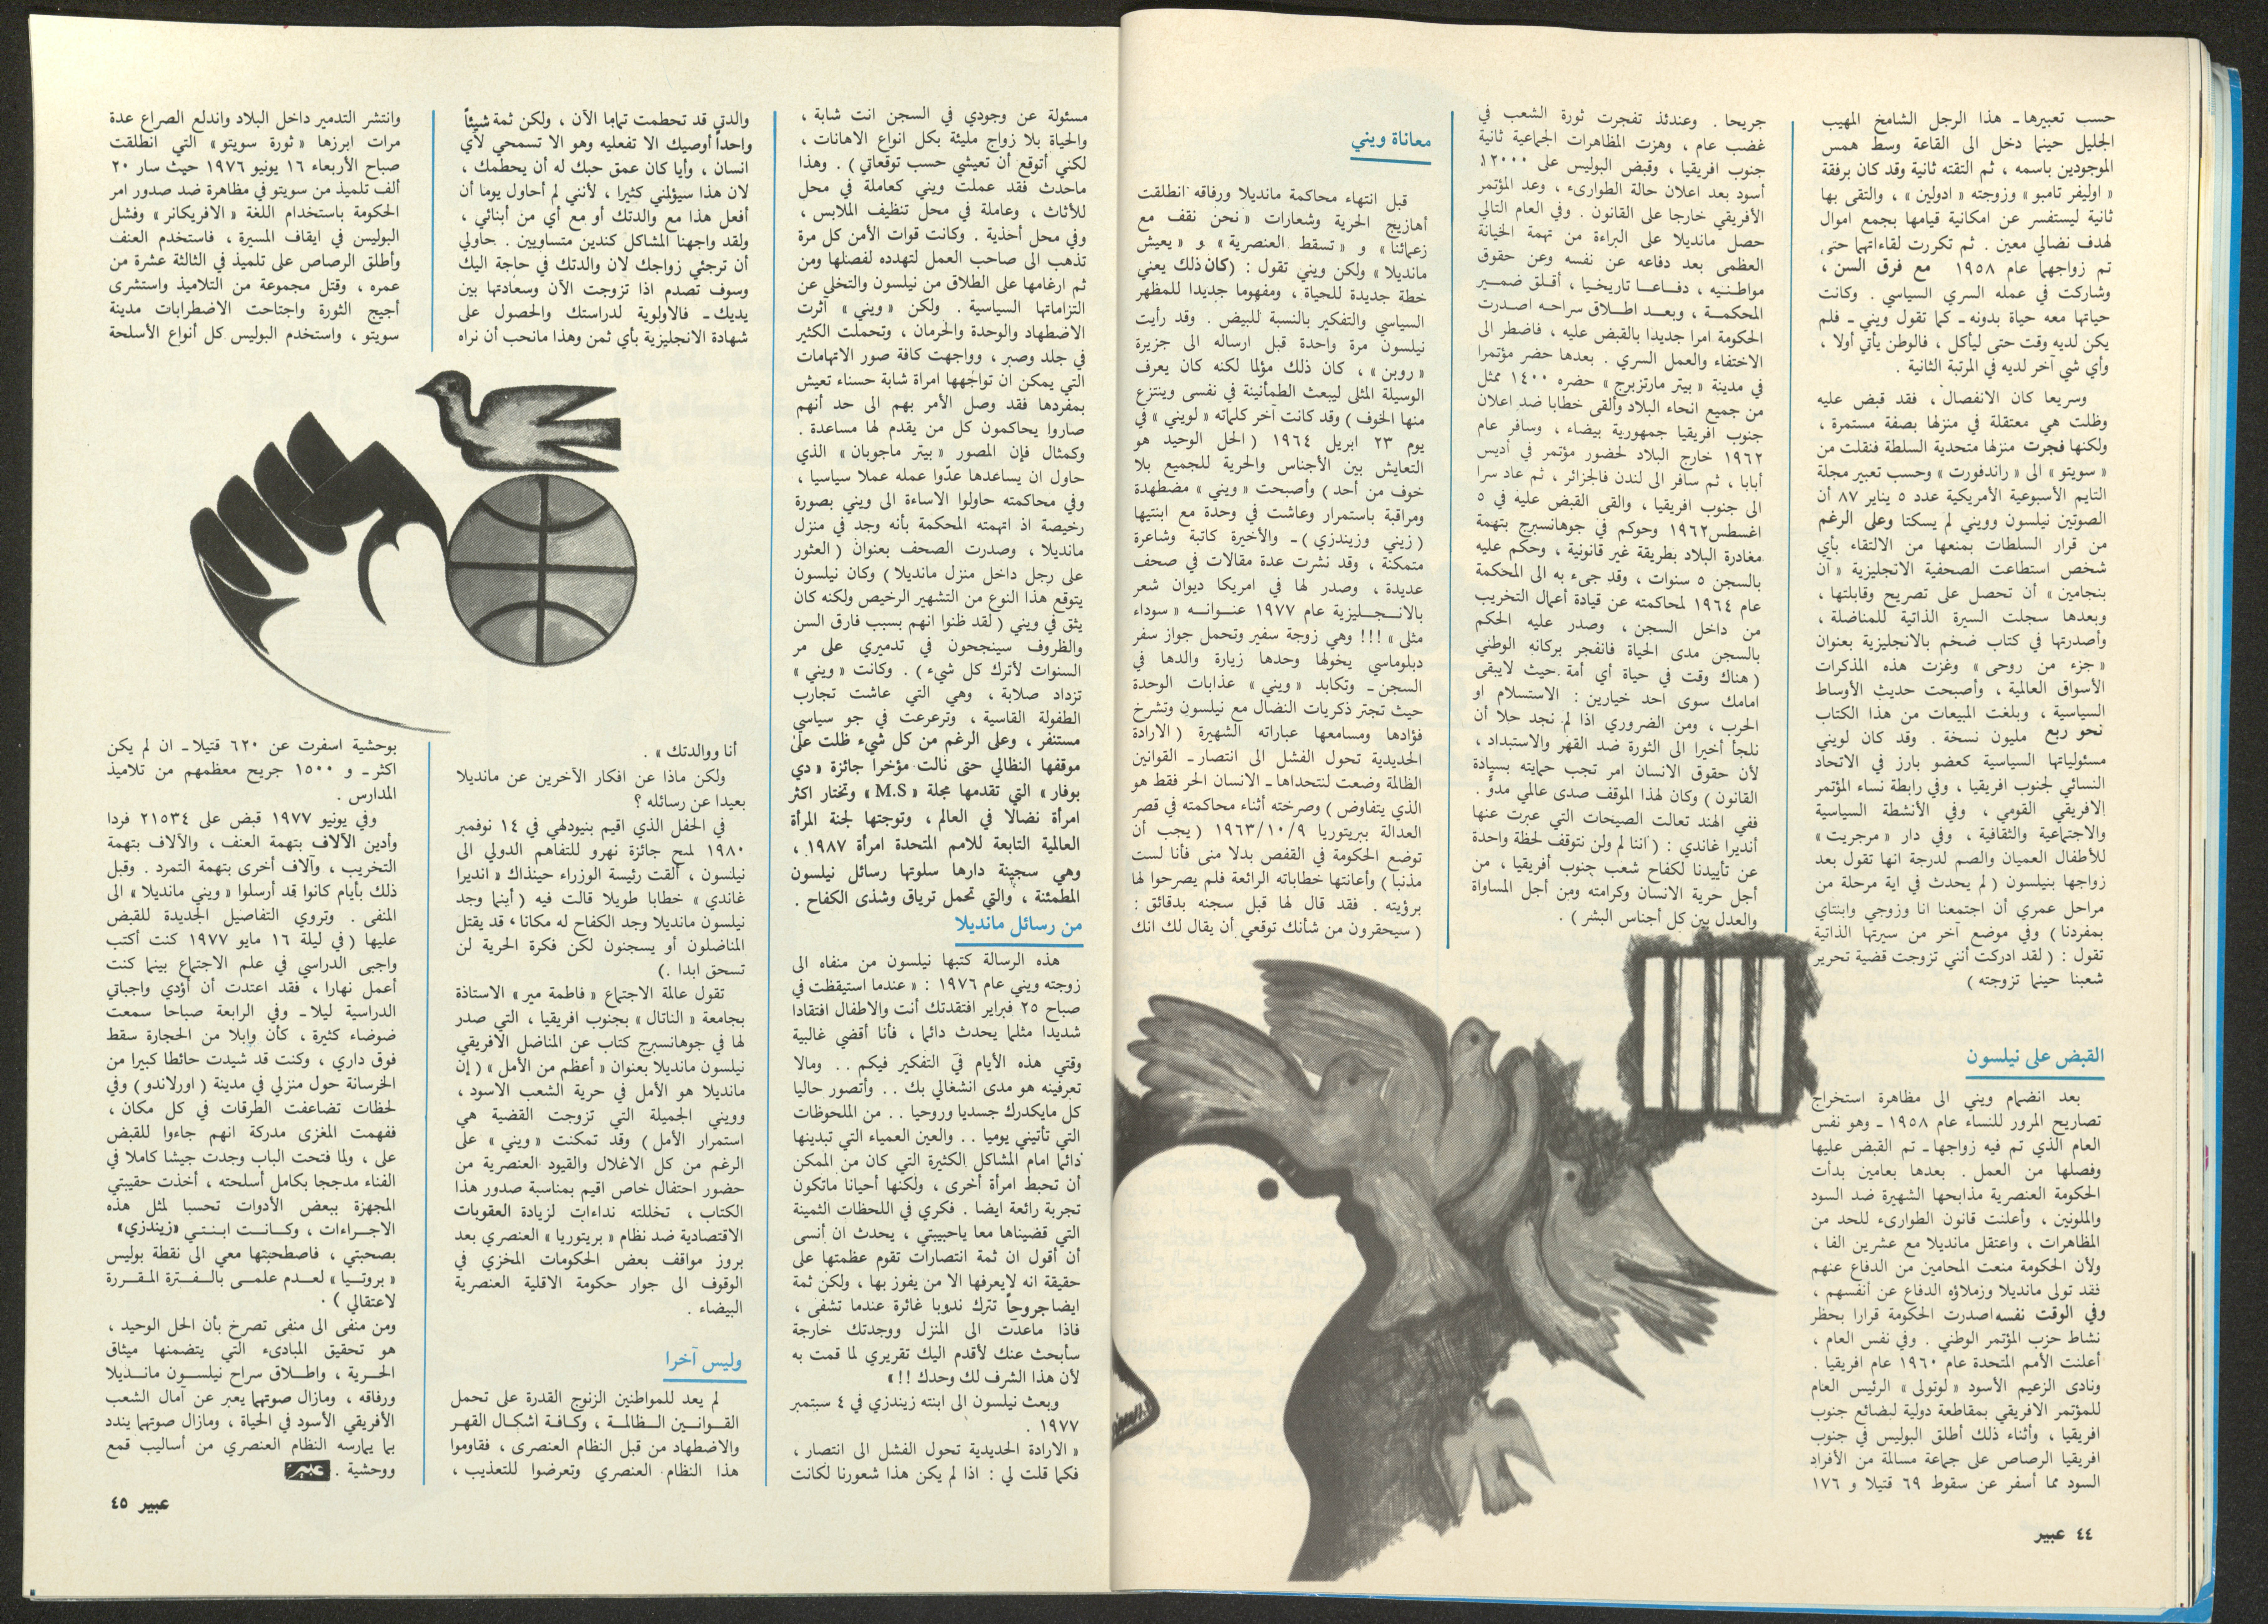 حسب تعبيرها ـ هذا الرجل الشامخ المهيب
الجليل حينما دخل الى القاعة وسط همس
الموجودين باسمه ، ثم التقته ثانية وقد كان برفقة
« اوليفر تامبو » وزوجته « ادولين » ، والتقى بها
ثانية ليستفسر عن امكانية قيامها بجمع اموال
لهدف نضالي معين . ثم تكررت لقاءاتهما حتى
تم زواجهما عام ١٩٥٨ مع فرق السن ،
وشاركت في عمله السري السياسي . وكانت
حياتها معه حياة بدونه ـ كما تقول ويني ـ فلم
يكن لديه وقت حتى ليأكل ، فالوطن يأتي أولا ،
وأي شي آخر لديه في المرتبة الثانية .
وسريعا كان الانفصال ، فقد قبض عليه
وظلت هي معتقلة في منزلها بصفة مستمرة ،
ولكنها فجرت منزلها متحدية السلطة فنقلت من
« سويتو » الى « راندفورت » وحسب تعبير مجلة
التايم الأسبوعية الأمريكية عدد ٥ يناير ٨٧ أن
الصوتين نيلسون وويني لم يسكتا وعلى الرغم
من قرار السلطات بمنعها من الالتقاء بأي
شخص استطاعت الصحفية الانجليزية « آن
بنجامين » أن تحصل على تصريح وقابلتها ،
وبعدها سجلت السيرة الذاتية للمناضلة ،
وأصدرتها في كتاب ضخم بالانجليزية بعنوان
« جزء من روحى » وغزت هذه المذكرات
الأسواق العالمية ، وأصبحت حديث الأوساط
السياسية ، وبلغت المبيعات من هذا الكتاب
نحو ربع مليون نسخة . وقد كان لويني
مسئولياتها السياسية كعضو بارز في الاتحاد
النسائي لجنوب افريقيا ، وفي رابطة نساء المؤتمر
الافريقي القومي ، وفي الأنشطة السياسية
والاجتماعية والثقافية ، وفي دار « مرجريت »
للأطفال العميان والصم لدرجة انها تقول بعد
زواجها بنيلسون ( لم يحدث في اية مرحلة من
مراحل عمري أن اجتمعنا انا وزوجي وابنتاي
بمفردنا ) وفي موضع آخر من سيرتها الذاتية
تقول : ( لقد ادركت أنني تزوجت قضية تحرير
شعبنا حينما تزوجته )
القبض على نيلسون
بعد انضمام ويني الى مظاهرة استخراج
تصاريح المرور للنساء عام ١٩٥٨ ـ وهو نفس
العام الذي تم فيه زواجها ـ تم القبض عليها
وفصلها من العمل . بعدها بعامين بدأت
الحكومة العنصرية مذابحها الشهيرة ضد السود
والملونين ، وأعلنت قانون الطوارىء للحد من
المظاهرات ، واعتقل مانديلا مع عشرين الفا ،
ولأن الحكومة منعت المحامين من الدفاع عنهم
فقد تولى مانديلا وزملاؤه الدفاع عن أنفسهم ،
وفي الوقت نفسه اصدرت الحكومة قرارا بحظر
نشاط حزب المؤتمر الوطني . وفي نفس العام ،
أعلنت الأمم المتحدة عام ١٩٦٠ عام افريقيا .
ونادى الزعيم الأسود « لوتولى » الرئيس العام
للمؤتمر الافريقي بمقاطعة دولية لبضائع جنوب
افريقيا ، وأثناء ذلك أطلق البوليس في جنوب
افريقيا الرصاص على جماعة مسالمة من الأفراد
السود مما أسفر عن سقوط ٦٩ قتيلا و ١٧٦
جريحا . وعندئذ تفجرت ثورة الشعب في
غضب عام ، وهزت المظاهرات الجماعية ثانية
جنوب افريقيا ، وقبض البوليس على ١٢٠٠٠
أسود بعد اعلان حالة الطوارىء ، وعد المؤتمر
الأفريقي خارجا على القانون . وفي العام التالي
حصل مانديلا على البراءة من تهمة الخيانة
العظمى بعد دفاعه عن نفسه وعن حقوق
مواطنيه ، دفاعا تاريخيا ، أقلق ضمير
المحكمة ، وبعد اطلاق سراحه اصدرت
الحكومة امرا جديدا بالقبض عليه ، فاضطر الى
الاختفاء والعمل السري . بعدها حضر مؤتمرا
في مدينة « بيتر مارتزبرج » حضره ١٤٠٠ ممثل
من جميع انحاء البلاد وألقى خطابا ضد اعلان
جنوب افريقيا جمهورية بيضاء ، وسافر عام
١٩٦٢ خارج البلاد لحضور مؤتمر في أديس
أبابا ، ثم سافر الى لندن فالجزائر ، ثم عاد سرا
الى جنوب افريقيا ، والقى القبض عليه في ٥
اغسطس ١٩٦٢ وحوكم في جوهانسبرج بتهمة
مغادرة البلاد بطريقة غير قانونية ، وحكم عليه
بالسجن ٥ سنوات ، وقد جىء به الى المحكمة
عام ١٩٦٤ لمحاكمته عن قيادة أعمال التخريب
من داخل السجن ، وصدر عليه الحكم
بالسجن مدى الحياة فانفجر بركانه الوطني
( هناك وقت في حياة أي أمة حيث لايبقى
امامك سوى احد خيارين : الاستسلام او
الحرب ، ومن الضروري اذا لم نجد حلا أن
نلجأ أخيرا الى الثورة ضد القهر والاستبداد ،
لأن حقوق الانسان امر تجب حمايته بسيادة
القانون ) وكان لهذا الموقف صدى عالمي مدوّ .
ففي الهند تعالت الصيحات التي عبرت عنها
أنديرا غاندي : ( اننا لم ولن نتوقف لحظة واحدة
عن تأييدنا لكفاح شعب جنوب أفريقيا ، من
أجل حرية الانسان وكرامته ومن أجل المساواة
والعدل بين كل أجناس البشر ) .
معاناة ويني
قبل انتهاء محاكمة مانديلا ورفاقه انطلقت
أهازيج الحرية وشعارات « نحن نقف مع
زعمائنا » و « تسقط العنصرية » و « يعيش
مانديلا » ولكن ويني تقول : ( كان ذلك يعني
خطة جديدة للحياة ، ومفهوما جديدا للمظهر
السياسي والتفكير بالنسبة للبيض . وقد رأيت
نيلسون مرة واحدة قبل ارساله الى جزيرة
« روبن » ، كان ذلك مؤلما لكنه كان يعرف
الوسيلة المثلى ليبعث الطمأنينة في نفسى وينتزع
منها الخوف ) وقد كانت آخر كلماته « لويني » في
يوم ٢٣ ابريل ١٩٦٤ ( الحل الوحيد هو
التعايش بين الأجناس والحرية للجميع بلا
خوف من أحد ) وأصبحت « ويني » مضطهدة
ومراقبة باستمرار وعاشت في وحدة مع ابنتيها
( زيني وزيندزي ) ـ والأخيرة كاتبة وشاعرة
متمكنة ، وقد نشرت عدة مقالات في صحف
عديدة ، وصدر لها في امريكا ديوان شعر
بالانجليزية عام ١٩٧٧ عنوانه « سوداء
مثلى » !!! وهي زوجة سفير وتحمل جواز سفر
دبلوماسي يخولها وحدها زيارة والدها في
السجن ـ وتكابد « ويني » عذابات الوحدة
حيث تجتر ذكريات النضال مع نيلسون وتشرخ
فؤادها ومسامعها عباراته الشهيرة ( الارادة
الحديدية تحول الفشل الى انتصار ـ القوانين
الظالمة وضعت لنتحداها ـ الانسان الحر فقط هو
الذي يتفاوض ) وصرخته أثناء محاكمته في قصر
العدالة ببريتوريا ١٩٦٣/١٠/٩ ( يجب أن
توضع الحكومة في القفص بدلا منى فأنا لست
مذنبا ) وأعانتها خطاباته الرائعة فلم يصرحوا لها
برؤيته . فقد قال لها قبل سجنه بدقائق :
( سيحقرون من شأنك توقعي أن يقال لك انك
٤٤ عبير
مسئولة عن وجودي في السجن انت شابة ،
والحياة بلا زواج مليئة بكل انواع الاهانات ،
لكني أتوقع أن تعيشي حسب توقعاتي ) . وهذا
ماحدث فقد عملت ويني كعاملة في محل
للأثاث ، وعاملة في محل تنظيف الملابس ،
وفي محل أحذية . وكانت قوات الأمن كل مرة
تذهب الى صاحب العمل لتهدده لفصلها ومن
ثم ارغامها على الطلاق من نيلسون والتخلي عن
التزاماتها السياسية . ولكن « ويني » آثرت
الاضطهاد والوحدة والحرمان ، وتحملت الكثير
في جلد وصبر ، وواجهت كافة صور الاتهامات
التي يمكن ان تواجهها امراة شابة حسناء تعيش
بمفردها فقد وصل الأمر بهم الى حد أنهم
صاروا يحاكمون كل من يقدم لها مساعدة .
وكمثال فإن المصور « بيتر ماجوبان » الذي
حاول ان يساعدها عدّوا عمله عملا سياسيا ،
وفي محاكمته حاولوا الاساءة الى ويني بصورة
رخيصة اذ اتهمته المحكمة بأنه وجد في منزل
مانديلا ، وصدرت الصحف بعنوان ( العثور
على رجل داخل منزل مانديلا ) وكان نيلسون
يتوقع هذا النوع من التشهير الرخيص ولكنه كان
يثق في ويني ( لقد ظنوا انهم بسبب فارق السن
والظروف سينجحون في تدميري على مر
السنوات لأترك كل شيء ) . وكانت « ويني »
تزداد صلابة ، وهي التي عاشت تجارب
الطفولة القاسية ، وترعرعت في جو سياسي
مستنفر ، وعلى الرغم من كل شيء ظلت على
موقفها النظالي حتى نالت مؤخرا جائزة « دي
بوفار » التي تقدمها مجلة « M.S » وتختار اكثر
امرأة نضالا في العالم ، وتوجتها لجنة المرأة
العالمية التابعة للامم المتحدة امرأة ١٩٨٧ ،
وهي سجينة دارها سلوتها رسائل نيلسون
المطمئنة ، والتي تحمل ترياق وشذى الكفاح .
من رسائل مانديلا
هذه الرسالة كتبها نيلسون من منفاه الى
زوجته ويني عام ١٩٧٦ : « عندما استيقظت في
صباح ٢٥ فبراير افتقدتك أنت والاطفال افتقادا
شديدا مثلما يحدث دائما ، فأنا أقضي غالبية
وقتي هذه الأيام في التفكير فيكم .. ومالا
تعرفينه هو مدى انشغالي بك .. وأتصور حاليا
كل مايكدرك جسديا وروحيا .. من الملحوظات
التي تأتيني يوميا .. والعين العمياء التي تبدينها
دائما امام المشاكل الكثيرة التي كان من الممكن
أن تحبط امرأة أخرى ، ولكنها أحيانا ماتكون
تجربة رائعة ايضا . فكري في اللحظات الثمينة
التي قضيناها معا ياحبيبتي ، يحدث ان أنسى
أن أقول ان ثمة انتصارات تقوم عظمتها على
حقيقة انه لايعرفها الا من يفوز بها ، ولكن ثمة
ايضا جروحاً تترك ندوبا غائرة عندما تشفى ،
فاذا ماعدت الى المنزل ووجدتك خارجة
سأبحث عنك لأقدم اليك تقريري لما قمت به
لأن هذا الشرف لك وحدك !! »
وبعث نيلسون الى ابنته زيندزي في ٤ سبتمبر
١٩٧٧ .
« الارادة الحديدية تحول الفشل الى انتصار ،
فكما قلت لي : اذا لم يكن هذا شعورنا لكانت
والدتي قد تحطمت تماما الآن ، ولكن ثمة شيئاً
واحداً أوصيك الا تفعليه وهو الا تسمحي لأي
انسان ، وأيا كان عمق حبك له أن يحطمك ،
لان هذا سيؤلمني كثيرا ، لأنني لم أحاول يوما أن
أفعل هذا مع والدتك أو مع أي من أبنائي ،
ولقد واجهنا المشاكل كندين متساويين . حاولي
أن ترجئي زواجك لان والدتك في حاجة اليك
وسوف تصدم اذا تزوجت الآن وسعادتها بين
يديك ـ فالاولوية لدراستك والحصول على
شهادة الانجليزية بأي ثمن وهذا مانحب أن نراه
أنا ووالدتك » .
ولكن ماذا عن افكار الآخرين عن مانديلا
بعيدا عن رسائله ؟
في الحفل الذي اقيم بنيودلهي في ١٤ نوفمبر
١٩٨٠ لمنح جائزة نهرو للتفاهم الدولي الى
نيلسون ، ألقت رئيسة الوزراء حينذاك « انديرا
غاندي » خطابا طويلا قالت فيه ( أينما وجد
نيلسون مانديلا وجد الكفاح له مكانا ، قد يقتل
المناضلون أو يسجنون لكن فكرة الحرية لن
تسحق ابدا . )
تقول عالمة الاجتماع « فاطمة مير » الاستاذة
بجامعة « الناتال » بجنوب افريقيا ، التي صدر
لها في جوهانسبرج كتاب عن المناضل الافريقي
نيلسون مانديلا بعنوان « أعظم من الأمل » ( إن
مانديلا هو الأمل في حرية الشعب الاسود ،
وويني الجميلة التي تزوجت القضية هي
استمرار الأمل ) وقد تمكنت « ويني » على
الرغم من كل الاغلال والقيود العنصرية من
حضور احتفال خاص اقيم بمناسبة صدور هذا
الكتاب ، تخللته نداءات لزيادة العقوبات
الاقتصادية ضد نظام « بريتوريا » العنصري بعد
بروز مواقف بعض الحكومات المخزي في
الوقوف الى جوار حكومة الاقلية العنصرية
البيضاء .
وليس آخرا
لم يعد للمواطنين الزنوج القدرة على تحمل
القوانين الظالمة ، وكافة اشكال القهر
والاضطهاد من قبل النظام العنصرى ، فقاوموا
هذا النظام العنصري وتعرضوا للتعذيب ،
وانتشر التدمير داخل البلاد واندلع الصراع عدة
مرات ابرزها « ثورة سويتو » التي انطلقت
صباح الأربعاء ١٦ يونيو ١٩٧٦ حيث سار ٢٠
ألف تلميذ من سويتو في مظاهرة ضد صدور امر
الحكومة باستخدام اللغة « الافريكانر » وفشل
البوليس في ايقاف المسيرة ، فاستخدم العنف
وأطلق الرصاص على تلميذ في الثالثة عشرة من
عمره ، وقتل مجموعة من التلاميذ واستشرى
أجيج الثورة واجتاحت الاضطرابات مدينة
سويتو ، واستخدم البوليس كل أنواع الأسلحة
بوحشية اسفرت عن ٦٢٠ قتيلا ـ ان لم يكن
اكثر ـ و ١٥٠٠ جريح معظمهم من تلاميذ
المدارس .
وفي يونيو ١٩٧٧ قبض على ٢١٥٣٤ فردا
وأدين الآلاف بتهمة العنف ، والآلاف بتهمة
التخريب ، وآلاف أخرى بتهمة التمرد . وقبل
ذلك بأيام كانوا قد أرسلوا « ويني مانديلا » الى
المنفى . وتروي التفاصيل الجديدة للقبض
عليها ( في ليلة ١٦ مايو ١٩٧٧ كنت أكتب
واجبى الدراسي في علم الاجتماع بينما كنت
أعمل نهارا ، فقد اعتدت أن أؤدي واجباتي
الدراسية ليلا ـ وفي الرابعة صباحا سمعت
ضوضاء كثيرة ، كأن وابلا من الحجارة سقط
فوق داري ، وكنت قد شيدت حائطا كبيرا من
الخرسانة حول منزلي في مدينة ( اورلاندو ) وفي
لحظات تضاعفت الطرقات في كل مكان ،
ففهمت المغزى مدركة انهم جاءوا للقبض
على ، ولما فتحت الباب وجدت جيشا كاملا في
الفناء مدججا بكامل أسلحته ، أخذت حقيبتي
المجهزة ببعض الأدوات تحسبا لمثل هذه
الاجراءات ، وكانت ابنتي «زيندزي»
بصحبتي ، فاصطحبتها معي الى نقطة بوليس
« بروتيا » لعدم علمى بالفترة المقررة
لاعتقالي ) .
ومن منفى الى منفى تصرخ بأن الحل الوحيد ،
هو تحقيق المبادىء التي يتضمنها ميثاق
الحرية ، واطلاق سراح نيلسون مانديلا
ورفاقه ، ومازال صوتهما يعبر عن آمال الشعب
الأفريقي الأسود في الحياة ، ومازال صوتهما يندد
بما يمارسه النظام العنصري من أساليب قمع
ووحشية . عبير
عبير ٤٥